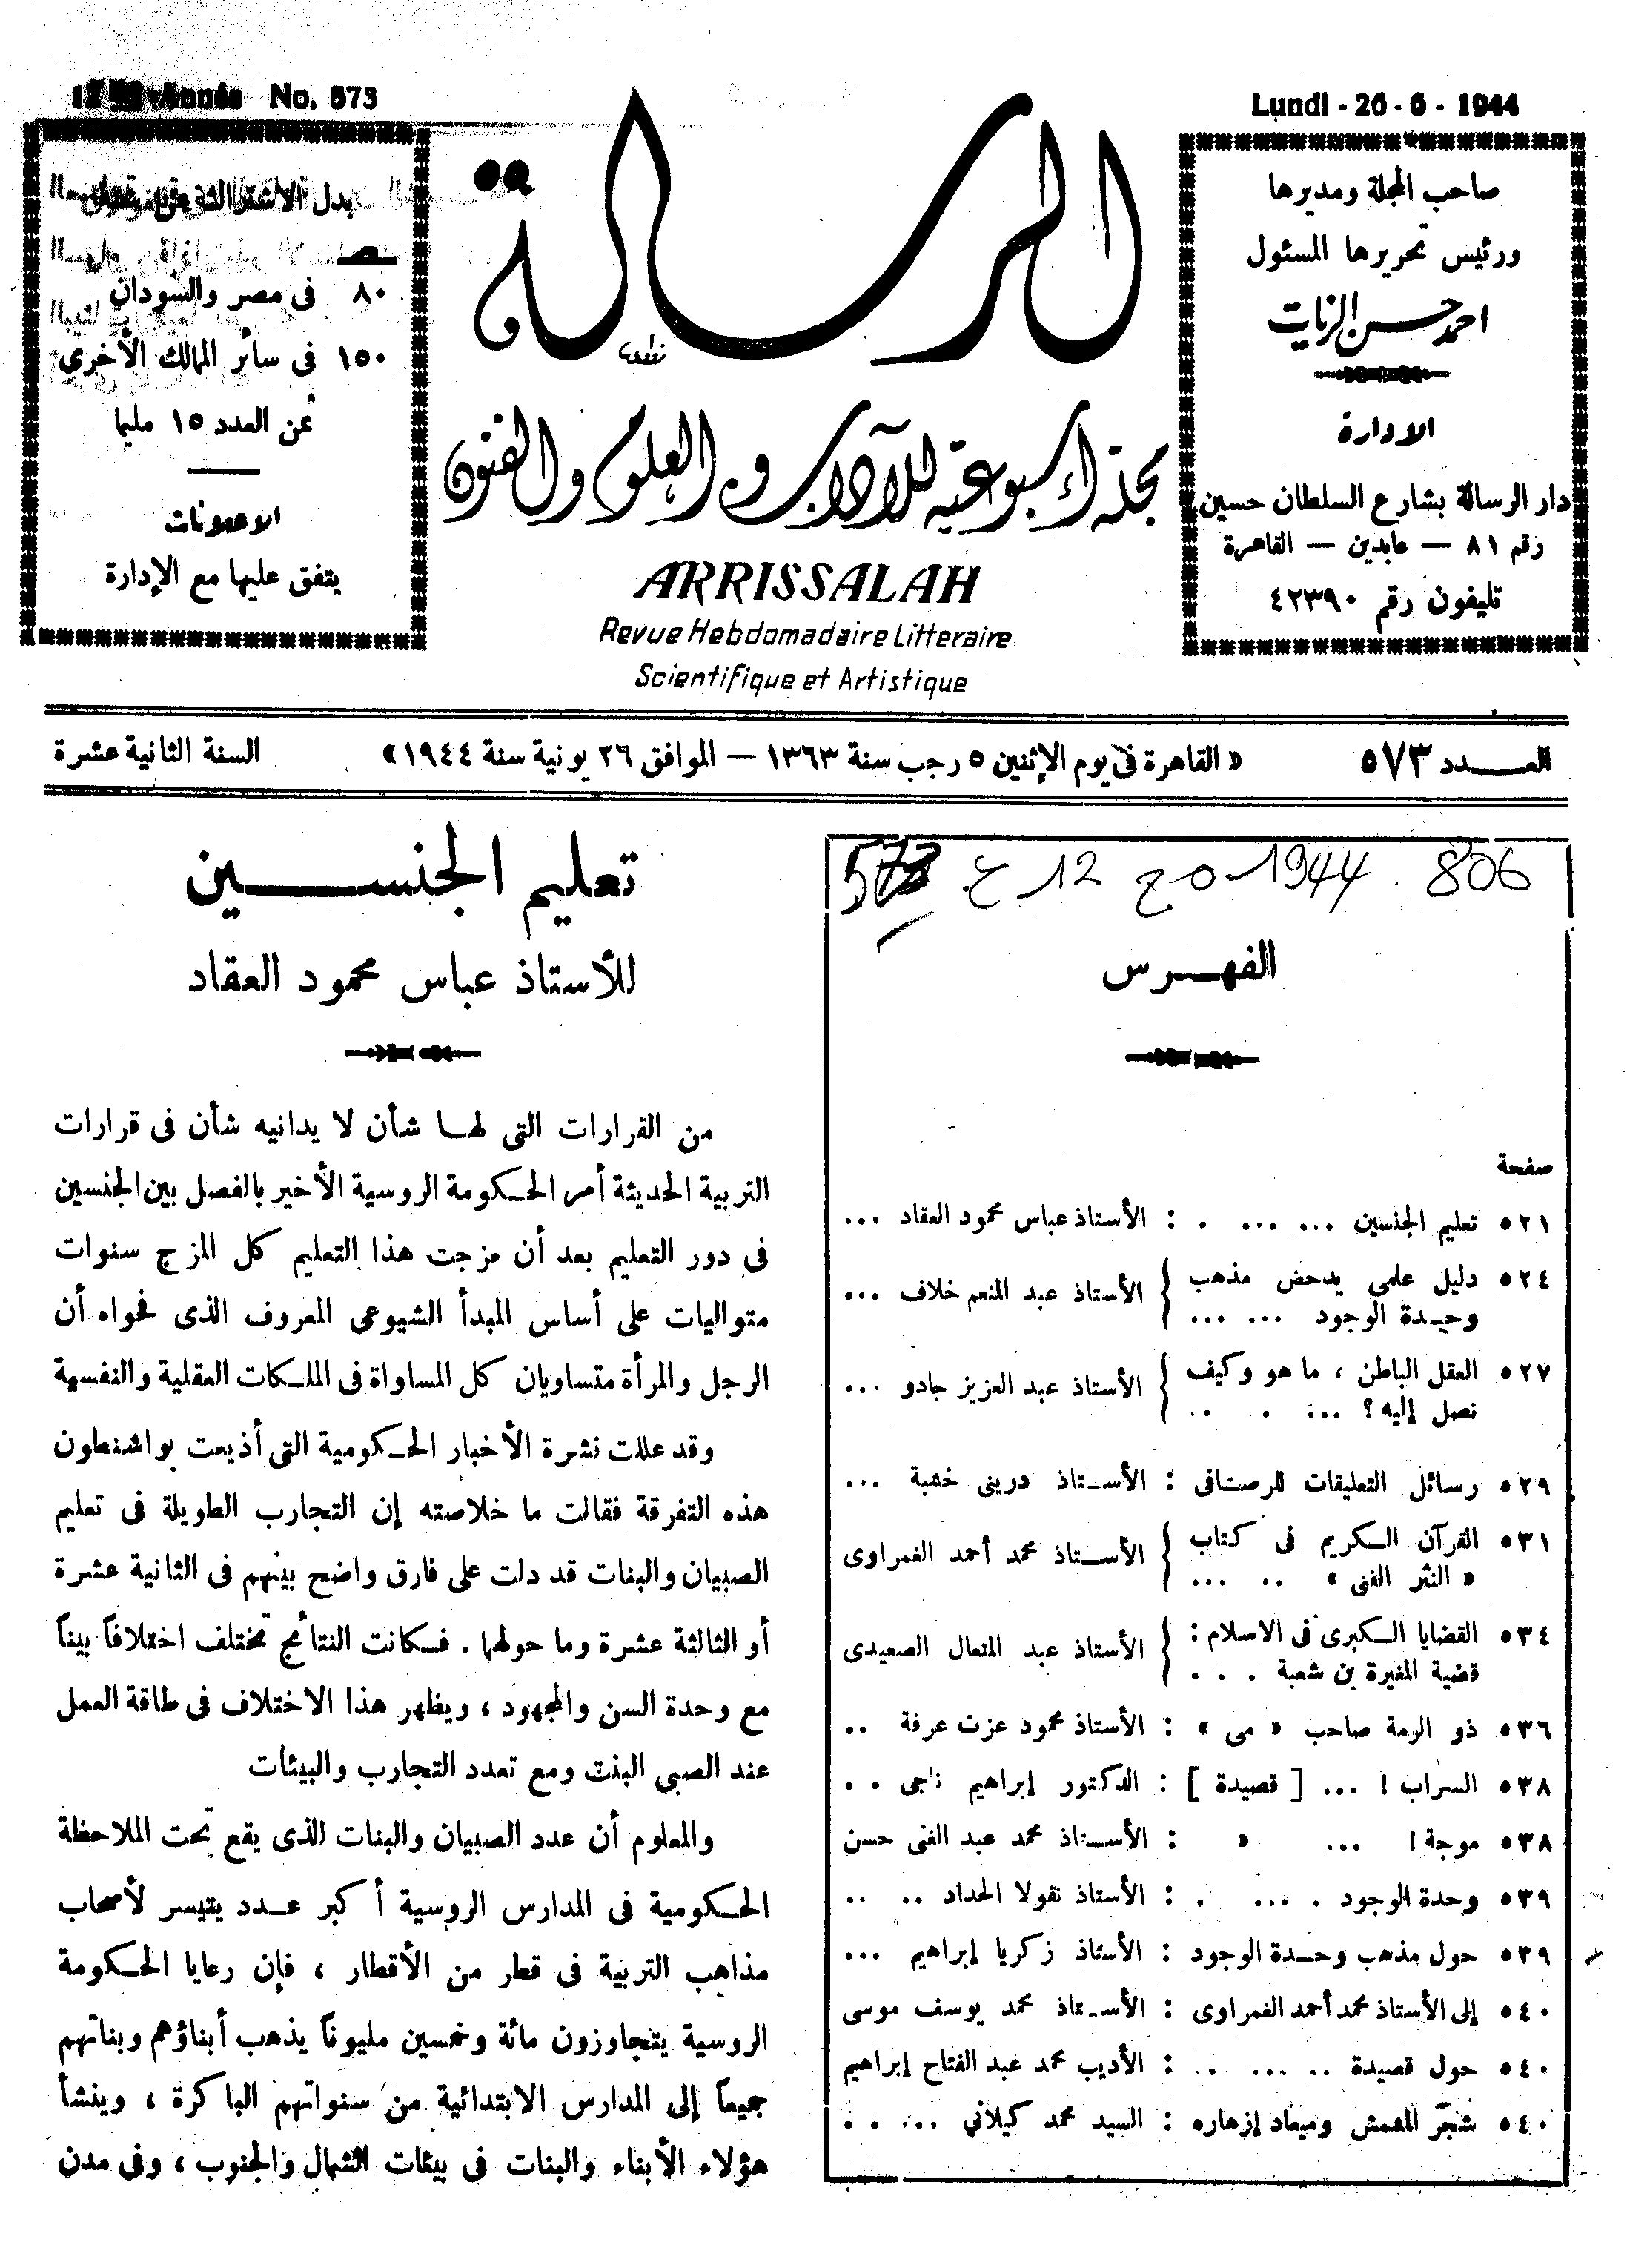 Lundi - 26 - 6 - 1944
صاحب المجلة ومديرها
ورئيس تحريرها المسئول
احمد حسن الزيات
الادارة
دار الرسالة بشارع السلطان حسين
رقم ٨١ — عابدين — القاهرة
تليفون رقم ٤٢٣٩٠
الرسالة
مجلة أسبوعية للآداب والعلوم والفنون
ARRISSALAH
Revue Hebdomadaire Litteraire
Scientifique et Artistique
Année No. 573
بدل الاشتراك عن سنة
٨٠ فى مصر والسودان
١٥٠ فى سائر الممالك الأخرى
ثمن العدد ١٥ مليما
الاعلانات
يتفق عليها مع الإدارة
العـــدد ٥٧٣ « القاهرة فى يوم الإثنين ٥ رجب سنة ١٣٦٣ — الموافق ٢٦ يونية سنة ١٩٤٤ » السنة الثانية عشرة
1944 806
الفهـــرس
صفحة
٥٢١ تعليم الجنسين ... ... . : الأستاذ عباس محمود العقاد ...
٥٢٤ دليل علمى يدحض مذهب
وحـدة الوجود ... ... } الأستاذ عبد المنعم خلاف ...
٥٢٧ العقل الباطن ، ما هو وكيف
نصل إليه ؟ ... . .. } الأستاذ عبد العزيز جادو ...
٥٢٩ رسائل التعليقات للرصـافى : الأسـتاذ درينى خشبة ...
٥٣١ القرآن الـكريم فى كتاب
« النثر الفنى » .. ... } الأســتاذ محمد أحمد الغمراوى
٥٣٤ القضايا الـكبرى فى الاسلام :
قضية المغيرة بن شعبة . . . } الأستاذ عبد المتعال الصعيدى
٥٣٦ ذو الرمة صاحب « مى » : الأستاذ محمود عزت عرفة ..
٥٣٨ السراب ! ... [ قصيدة ] : الدكتور إبراهيم ناجى . .
٥٣٨ موجة ! ... » : الأسـتاذ محمد عبد الغنى حسن
٥٣٩ وحدة الوجود . ... . : الأستاذ نقولا الحداد .. ..
٥٣٩ حول مذهب وحـدة الوجود : الأستاذ زكريا إبراهيم ...
٥٤٠ إلى الأستاذ محمد أحمد الغمراوى : الأسـتاذ محمد يوسف موسى
٥٤٠ حول قصيدة .. ... .. : الأديب محمد عبد الفتاح إبراهيم
٥٤٠ شجر المشمش وميعاد إزهاره : السيد محمد كيلاني ... . .
تعليم الجنســـين
للأستاذ عباس محمود العقاد
من القرارات التى لهـا شأن لا يدانيه شأن فى قرارات
التربية الحديثة أمر الحـكومة الروسية الأخير بالفصل بين الجنسين
فى دور التعليم بعد أن مزجت هذا التعليم كل المزج سنوات
متواليات على أساس المبدأ الشيوعى المعروف الذى فحواه أن
الرجل والمرأة متساويان كل المساواة فى الملـكات العقلية والنفسية
وقد عللت نشرة الأخبار الحـكومية التى أذيعت بواشنطون
هذه التفرقة فقالت ما خلاصته إن التجارب الطويلة فى تعليم
الصبيان والبنات قد دلت على فارق واضح بينهم فى الثانية عشرة
أو الثالثة عشرة وما حولهما . فـكانت النتائج تختلف اختلافاً بيناً
مع وحدة السن والمجهود ، ويظهر هذا الاختلاف فى طاقة العمل
عند الصبى البنت ومع تعدد التجارب والبيئات
والمعلوم أن عدد الصبيان والبنات الذى يقع تحت الملاحظة
الحـكومية فى المدارس الروسية أكبر عـدد يتيسر لأصحاب
مذاهب التربية فى قطر من الأقطار ، فإن رعايا الحـكومة
الروسية يتجاوزون مائة وخمسين مليوناً يذهب أبناؤهم وبناتهم
جميعاً إلى المدارس الابتدائية من سنواتهم الباكرة ، وينشأ
هؤلاء الأبناء والبنات فى بيئات الشمال والجنوب ، وفى مدن